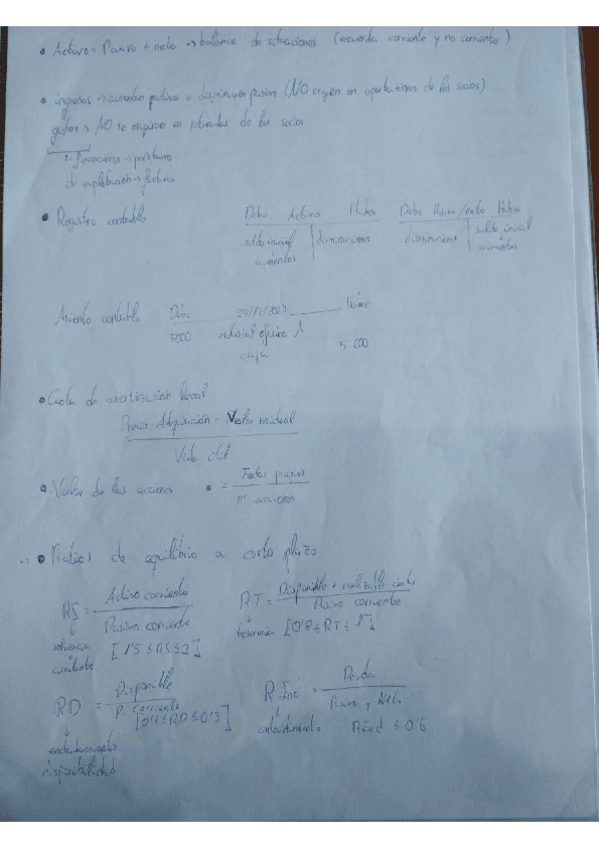 • Activo = Pasivo + neto → balance de situaciones (recuerda corriente y no corriente)
• ingresos → aumentan activo o disminuyen pasivo (NO origen en aportaciones de los socios)
gastos → NO se originan en retiradas de los socios
financieros → préstamo
de explotación → facturas
• Registro contable
Debe Activo Haber Debe Pasivo/neto Haber
saldo inicial disminuciones disminuciones saldo inicial
aumentos aumentos
Asiento contable Debe Haber
5000 material oficina
caja 5 000
• Cuota de amortización lineal
Precio Adquisición - Valor residual
Vida útil
• Valor de las acciones = Fondos propios
nº acciones
• Ratios de equilibrio a corto plazo
RS = Activo corriente
Pasivo corriente
solvencia [1'5 ≤ RS ≤ 2]
RT = Disponible + realizable
Pasivo corriente
tesorería [0'8 ≤ RT ≤ 1'
RD = Disponible
P. corriente
[0'1 ≤ RD ≤ 0'3]
disponibilidad
R = Deuda
Pasivo y Neto
endeudamiento ≤ 0'6